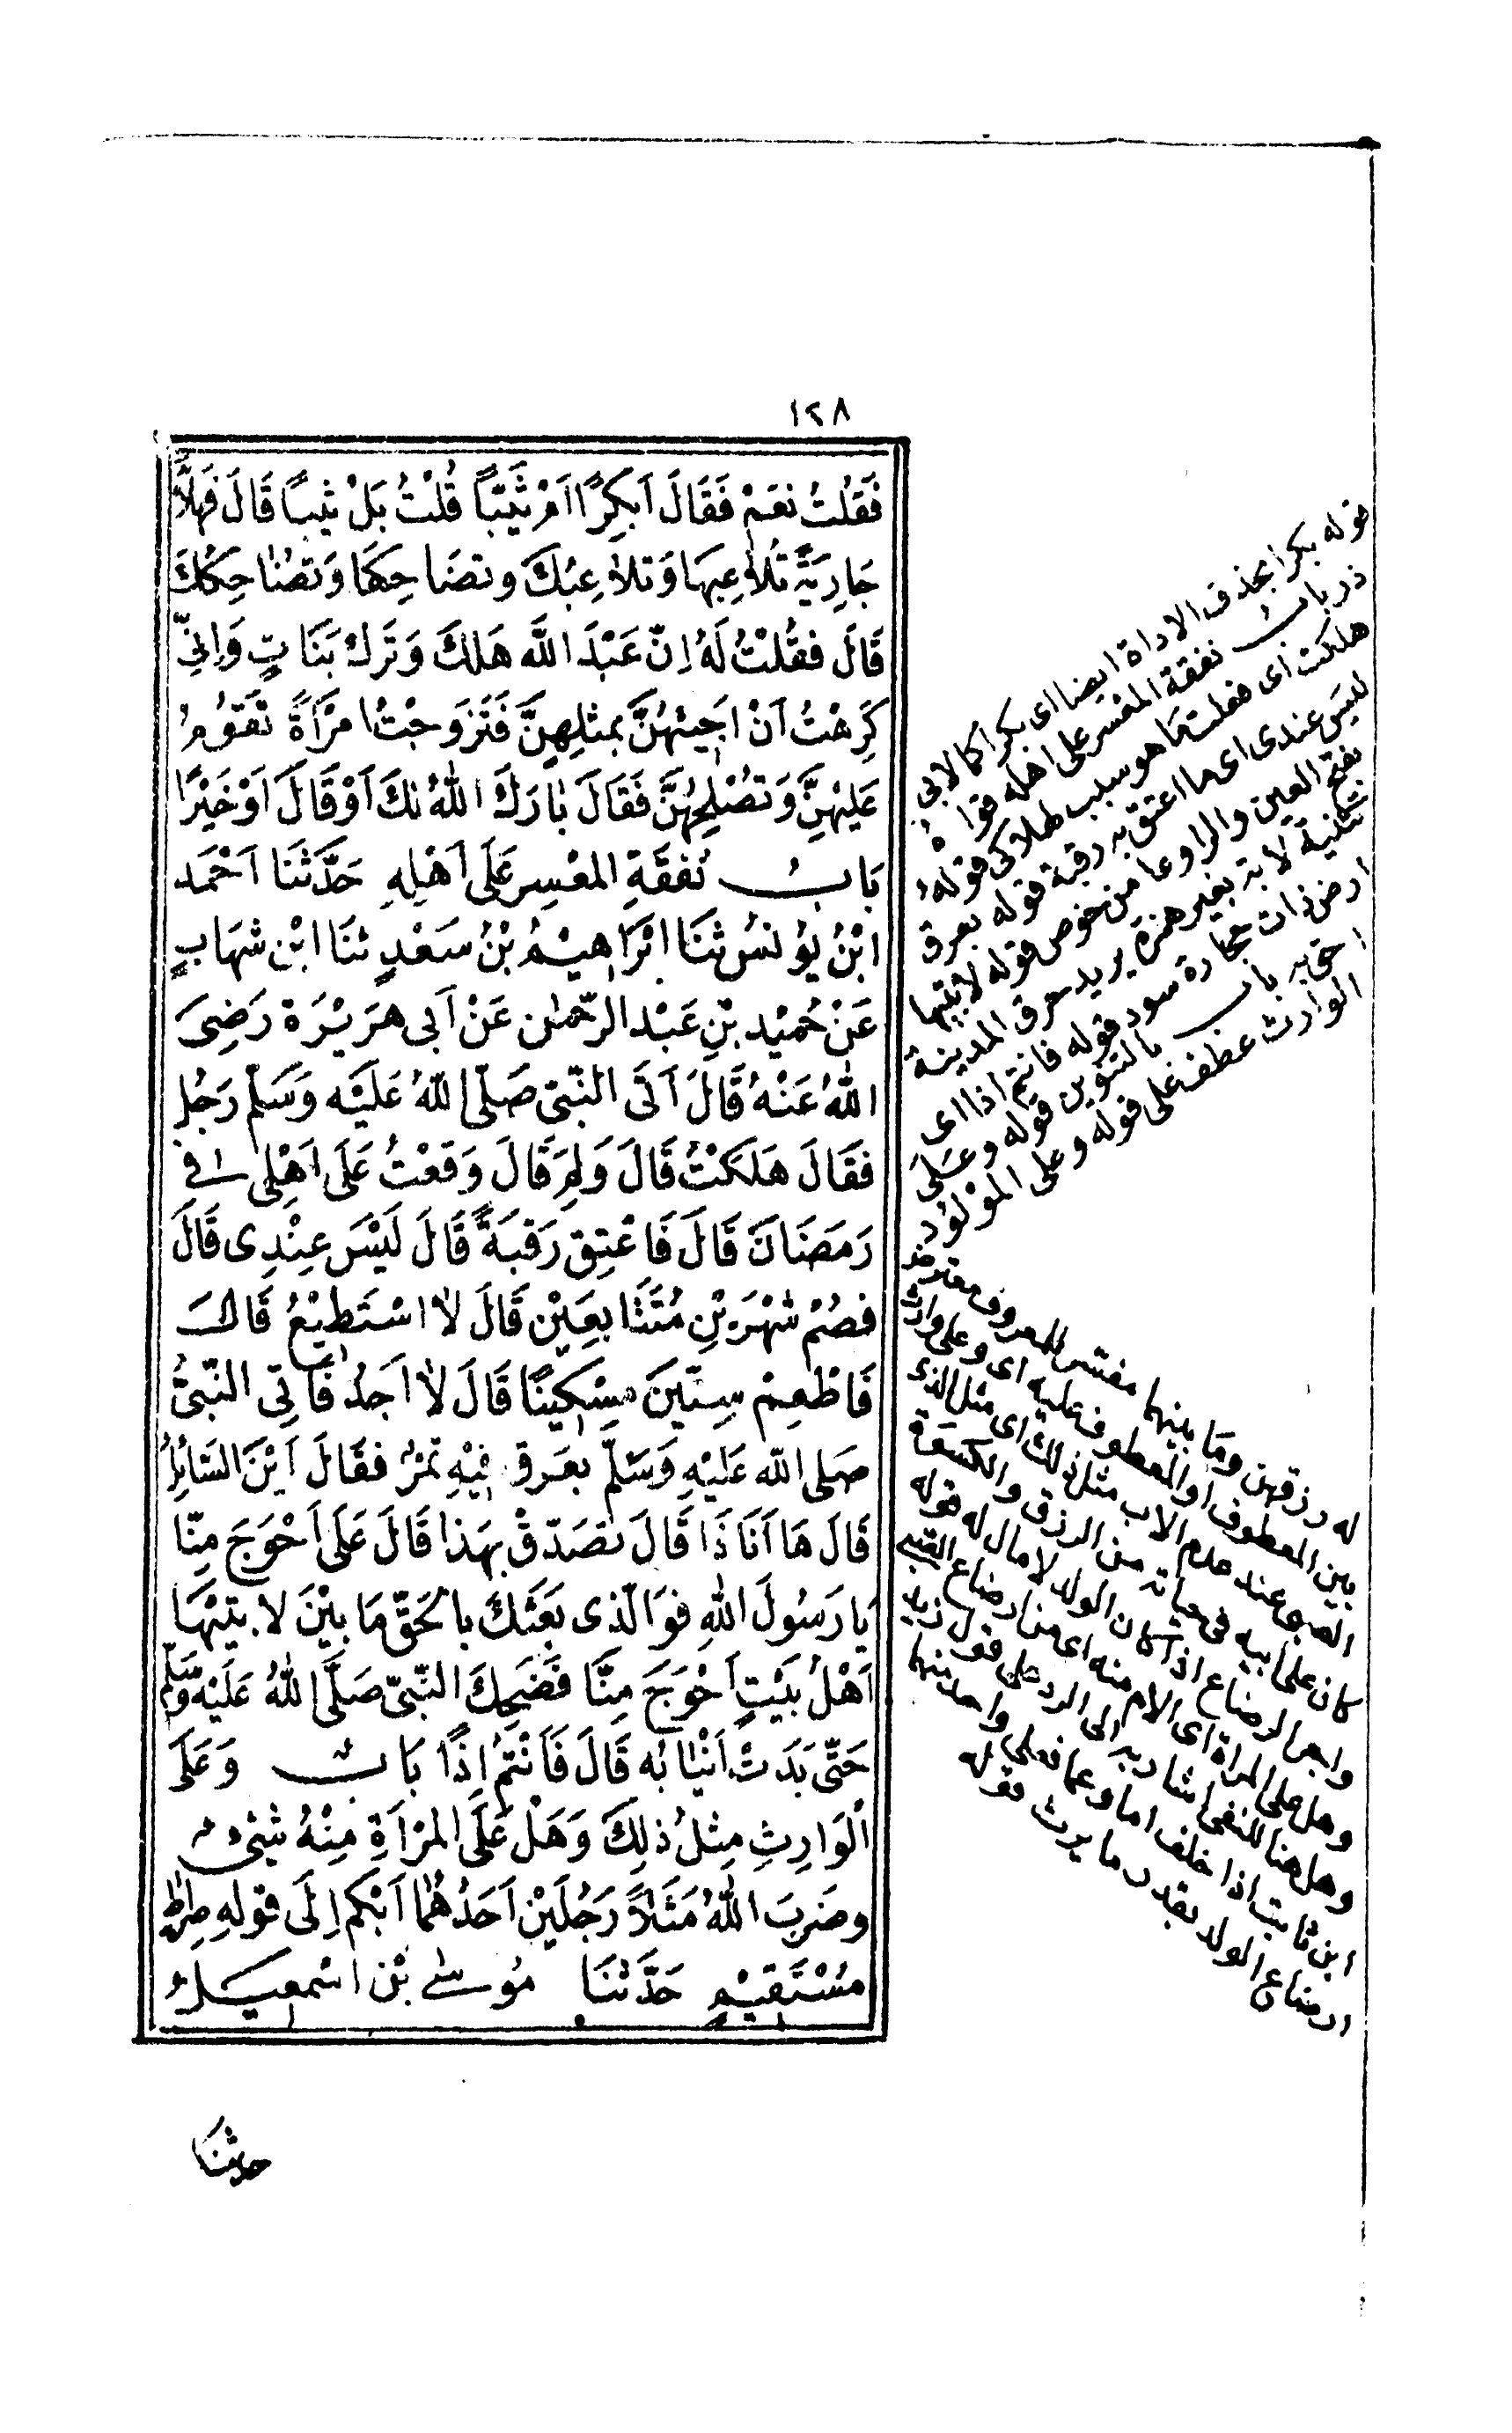 ١٢٨
فَقُلْتُ نَعَمْ فَقَالَ اَبِكْرًا اَمْ ثَيِّبًا قُلْتُ بَلْ ثَيِبًا قَالَ فَهَلَّا
جَارِيَةً تُلَاعِبُهَا وَتلَاعِبُكَ وتضَاحِكُهَا وَتضَاحِكُكَ
قَالَ فقُلْتُ لَهُ اِنّ عَبْدَ اللَّه هَلَكَ وَتَرَكَ بَنَاتٍ وَاِنِّي
كَرِهْتُ اَنْ اَجِيئَهُنَّ بمثلِهِنَّ فَتَزَوجْتُ امْرَأَةً تَقَوُمُ
عَليْهِنَّ وَتصْلِحُهُنَّ فَقَالَ بٰارَكَ اللهُ لكَ اَوْ قَالَ اَوْ خَيْرًا
بَابُ نَفقَةِ المعْسِرِ عَلَى اَهْلِهِ حَدَّثَنَا اَحْمَد
ابْنُ يُونسُ ثنَا اِبْرَاهِيْمُ بْنُ سَعْدٍ ثنَا ابْن شهَابٍ
عَنْ حُمَيْد بْنِ عَبْد الرّحمٰن عَنْ اَبى هرَيْرَة رَضِىَ
اللهُ عَنْهُ قَالَ اَتَى النّبىّ صَلّى اللّهُ عَلَيْه وَسَلّم رَجُلٌ
فقَالَ هَلَكْتُ قَالَ وَلِمَ قَالَ وَقعْتُ عَلَى اَهْلى فى
رَمَضَانَ قَالَ فَاَعْتِق رَقبَةً قَالَ لَيْسَ عِنْدِى قَالَ
فصُمْ شهْرَيْنِ مُتَتَابِعَيْن قَالَ لَا اسْتَطِيْعُ قَالَ
فَاطْعِمْ سِتّينَ مِسْكِينًا قَالَ لَا اَجِدُ فَاُتِى النّبىُّ
صَلى الله عَليْهِ وَسَلّم بعَرق فيْهِ تمْرٌ فقَالَ اَيْنَ السّائِلُ
قَالَ هَا اَنَا ذَا قَالَ تصَدّقْ بِهَذا قَالَ عَلَى اَحْوَجَ مِنّا
يَا رَسُولَ اللهِ فوَالّذى بَعَثكَ بالحَقّ مَا بيْنَ لَابَتَيْهَا
اَهْلُ بَيْتٍ اَحْوَجَ مِنَّا فَضَحِكَ النّبىّ صَلَّى اللّهُ عَلَيْه وَسَلّم
حَتّى بَدَتْ اَنْيَابُه قَالَ فَاَنْتُمْ اِذًا بَابٌ وَعَلَى
الْوَارِثِ مِثلُ ذٰلِكَ وَهَلْ عَلَى المرْأَةِ مِنْهُ شَىْءٌ
وضَرَبَ اللهُ مَثَلًا رَجُلَيْن اَحَدُهُمَا اَبْكَم اِلَى قوْلهِ صِرَاطٍ
مُسْتَقيْمٍ حَدَّثنَا مُوسٰى بْن اسْمعِيلُ
قوله بكرا بحذف الاداة ايضا اى بكرا كما لابى
ذر باب نفقة المعسر على اهله قوله
هلكت اى فعلت ما هو سبب هلاكى قوله
ليس عندى اى ما اعتق به رقبة قوله بعرق
بفتح العين والراء وعاء من خوص قوله لابتيها
تثنية لابة بغير همزة يريد حرتى المدينة
ارض ذات حجارة سود قوله فانتم اذا اى
احق به باب بالتنوين قوله وعلى
الوارث عطف على قوله وعلى المولود
له رزقهن وما بينهما مفسر للمعروف معترض
بين المعطوف والمعطوف عليه اى وعلى وارث
الصبى عند عدم الاب مثل ذلك اى مثل الذى
كان على ابيه فى حياته من الرزق والكسوة
واجر الرضاع اذا كان الولد لا مال له قوله
وهل على المراة اى الام منه اى من ارضاع الصبى
وهل هنا للنفى اشار به الى الرد على قول زيد
ابن ثابت اذا خلف اما وعما فعلى كل واحد منهما
ارضاع الولد بقدر ما يرث قوله
حدثنا